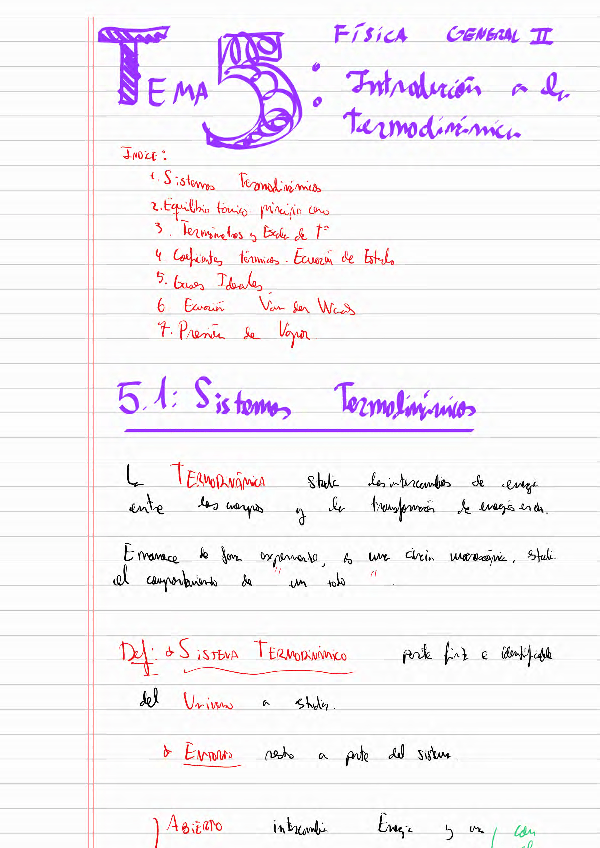 FÍSICA GENERAL II
TEMA 5: Introducción a la
termodinámica
ÍNDICE:
1. Sistemas Termodinámicos
2. Equilibrio térmico principio cero
3. Termómetros y Escala de Tª
4. Coeficientes térmicos. Ecuación de Estado
5. Gases Ideales
6 Ecuación Van der Waals
7. Presión de Vapor
5.1: Sistemas Termodinámicos
La TERMODINÁMICA studia los intercambios de energía
entre los cuerpos y la transformación de energía
de forma experimental, es una ciencia macroscópica, studia
el comportamiento de "un todo".
Def: SISTEMA TERMODINÁMICO parte finita e identificable
del Universo a studiar.
ENTORNO resto a parte del sistema
ABIERTO intercambia Energía y con